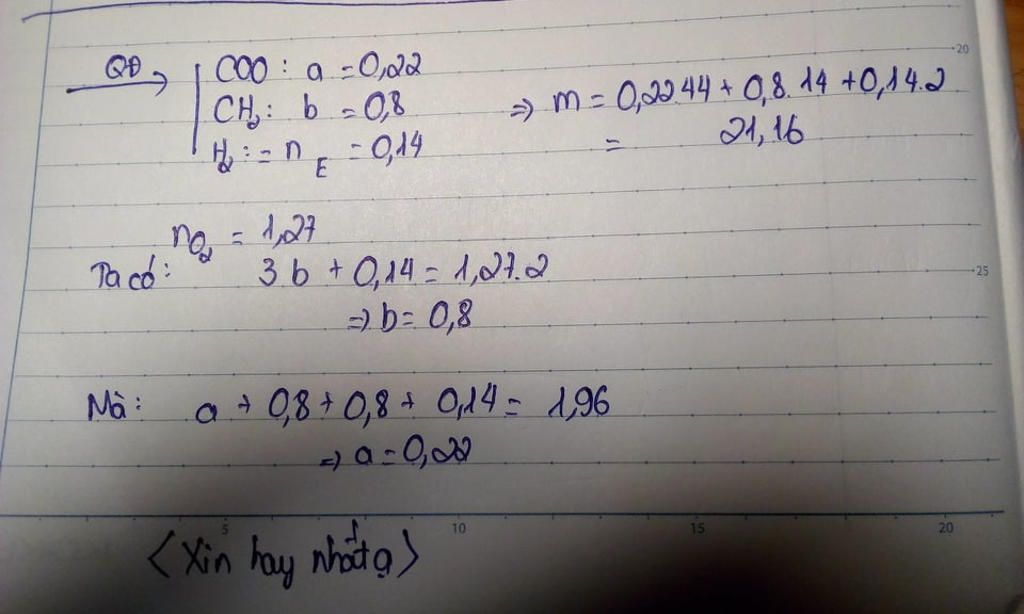 QĐ → COO : a = 0,22
CH₂ : b = 0,8 ⇒ m = 0,22.44 + 0,8.14 + 0,14.2
H₂ : = n_E = 0,14 = 21,16
20
nO₂ = 1,27
Ta có : 3b + 0,14 = 1,27.2
25
⇒ b = 0,8
Mà : a + 0,8 + 0,8 + 0,14 = 1,96
⇒ a = 0,22
5 10 15 20
<Xin hay nhất ạ>